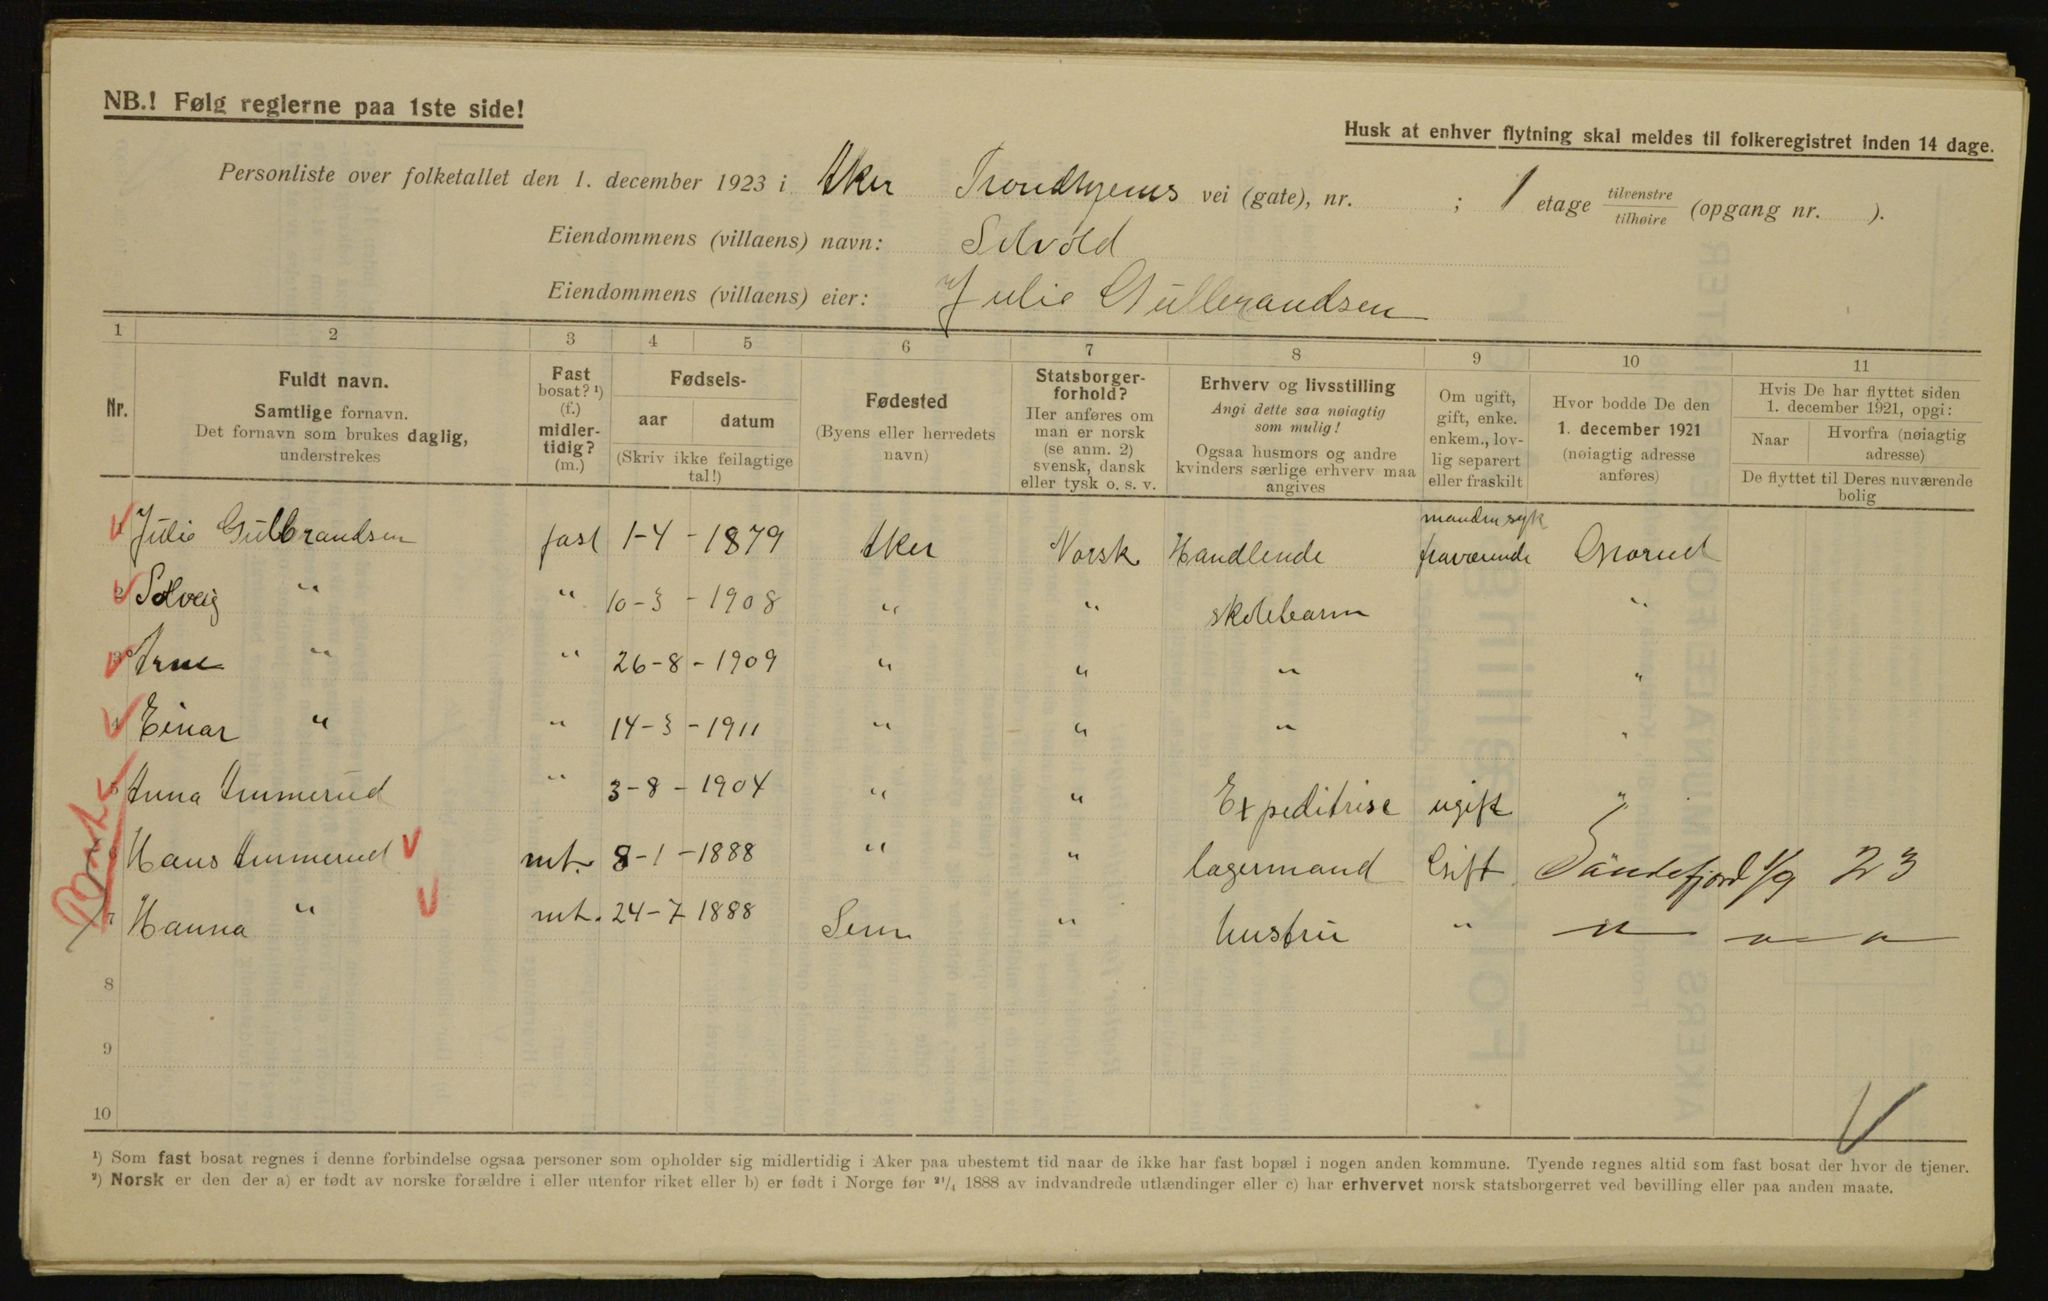 NB.! Følg reglerne paa 1ste side!
Husk at enhver flytning skal meldes til folkeregistret inden 14 dage.
Personliste over folketallet den 1. december 1923 i Aker Trondhjems vei (gate), nr. ; 1 etage tilvenstre tilhøire (opgang nr. ).
Eiendommens (villaens) navn: Solvold
Eiendommens (villaens) eier: Julie Gulbrandsen
1 2 3 4 5 6 7 8 9 10 11
Nr.
Fuldt navn.
Samtlige fornavn.
Det fornavn som brukes daglig,
understrekes
Fast
bosat? ¹)
(f.)
midler-
tidig?
(m.)
Fødsels-
aar datum
(Skriv ikke feilagtige
tal!)
Fødested
(Byens eller herredets
navn)
Statsborger-
forhold?
Her anføres om
man er norsk
(se anm. 2)
svensk, dansk
eller tysk o. s. v.
Erhverv og livsstilling
Angi dette saa nøiagtig
som mulig!
Ogsaa husmors og andre
kvinders særlige erhverv maa
angives
Om ugift,
gift, enke.
enkem., lov-
lig separert
eller fraskilt
Hvor bodde De den
1. december 1921
(nøiagtig adresse
anføres)
Hvis De har flyttet siden
1. december 1921, opgi:
Naar Hvorfra (nøiagtig
adresse)
De flyttet til Deres nuværende
bolig
manden syk
1 Julie Gulbrandsen fast 1-4-1879 Aker Norsk Handlende fraværende Grorud
2 Solveig " " 10-3-1908 " " skolebarn "
3 Arne " " 26-8-1909 " " " "
4 Einar " " 14-3-1911 " " " "
5 Anna Ammerud " 3-8-1904 " " Expeditrise ugift "
6 Hans Ammerud mt. 8-1-1888 " " lagermand Gift Sandefjord 1/9 23
7 Hanna " mt. 24-7 1888 Sem " hustru " " " "
8
9
10
¹) Som fast bosat regnes i denne forbindelse ogsaa personer som opholder sig midlertidig i Aker paa ubestemt tid naar de ikke har fast bopæl i nogen anden kommune. Tyende regnes altid som fast bosat der hvor de tjener.
²) Norsk er den der a) er født av norske forældre i eller utenfor riket eller b) er født i Norge før ²¹/₄ 1888 av indvandrede utlændinger eller c) har erhvervet norsk statsborgerret ved bevilling eller paa anden maate.